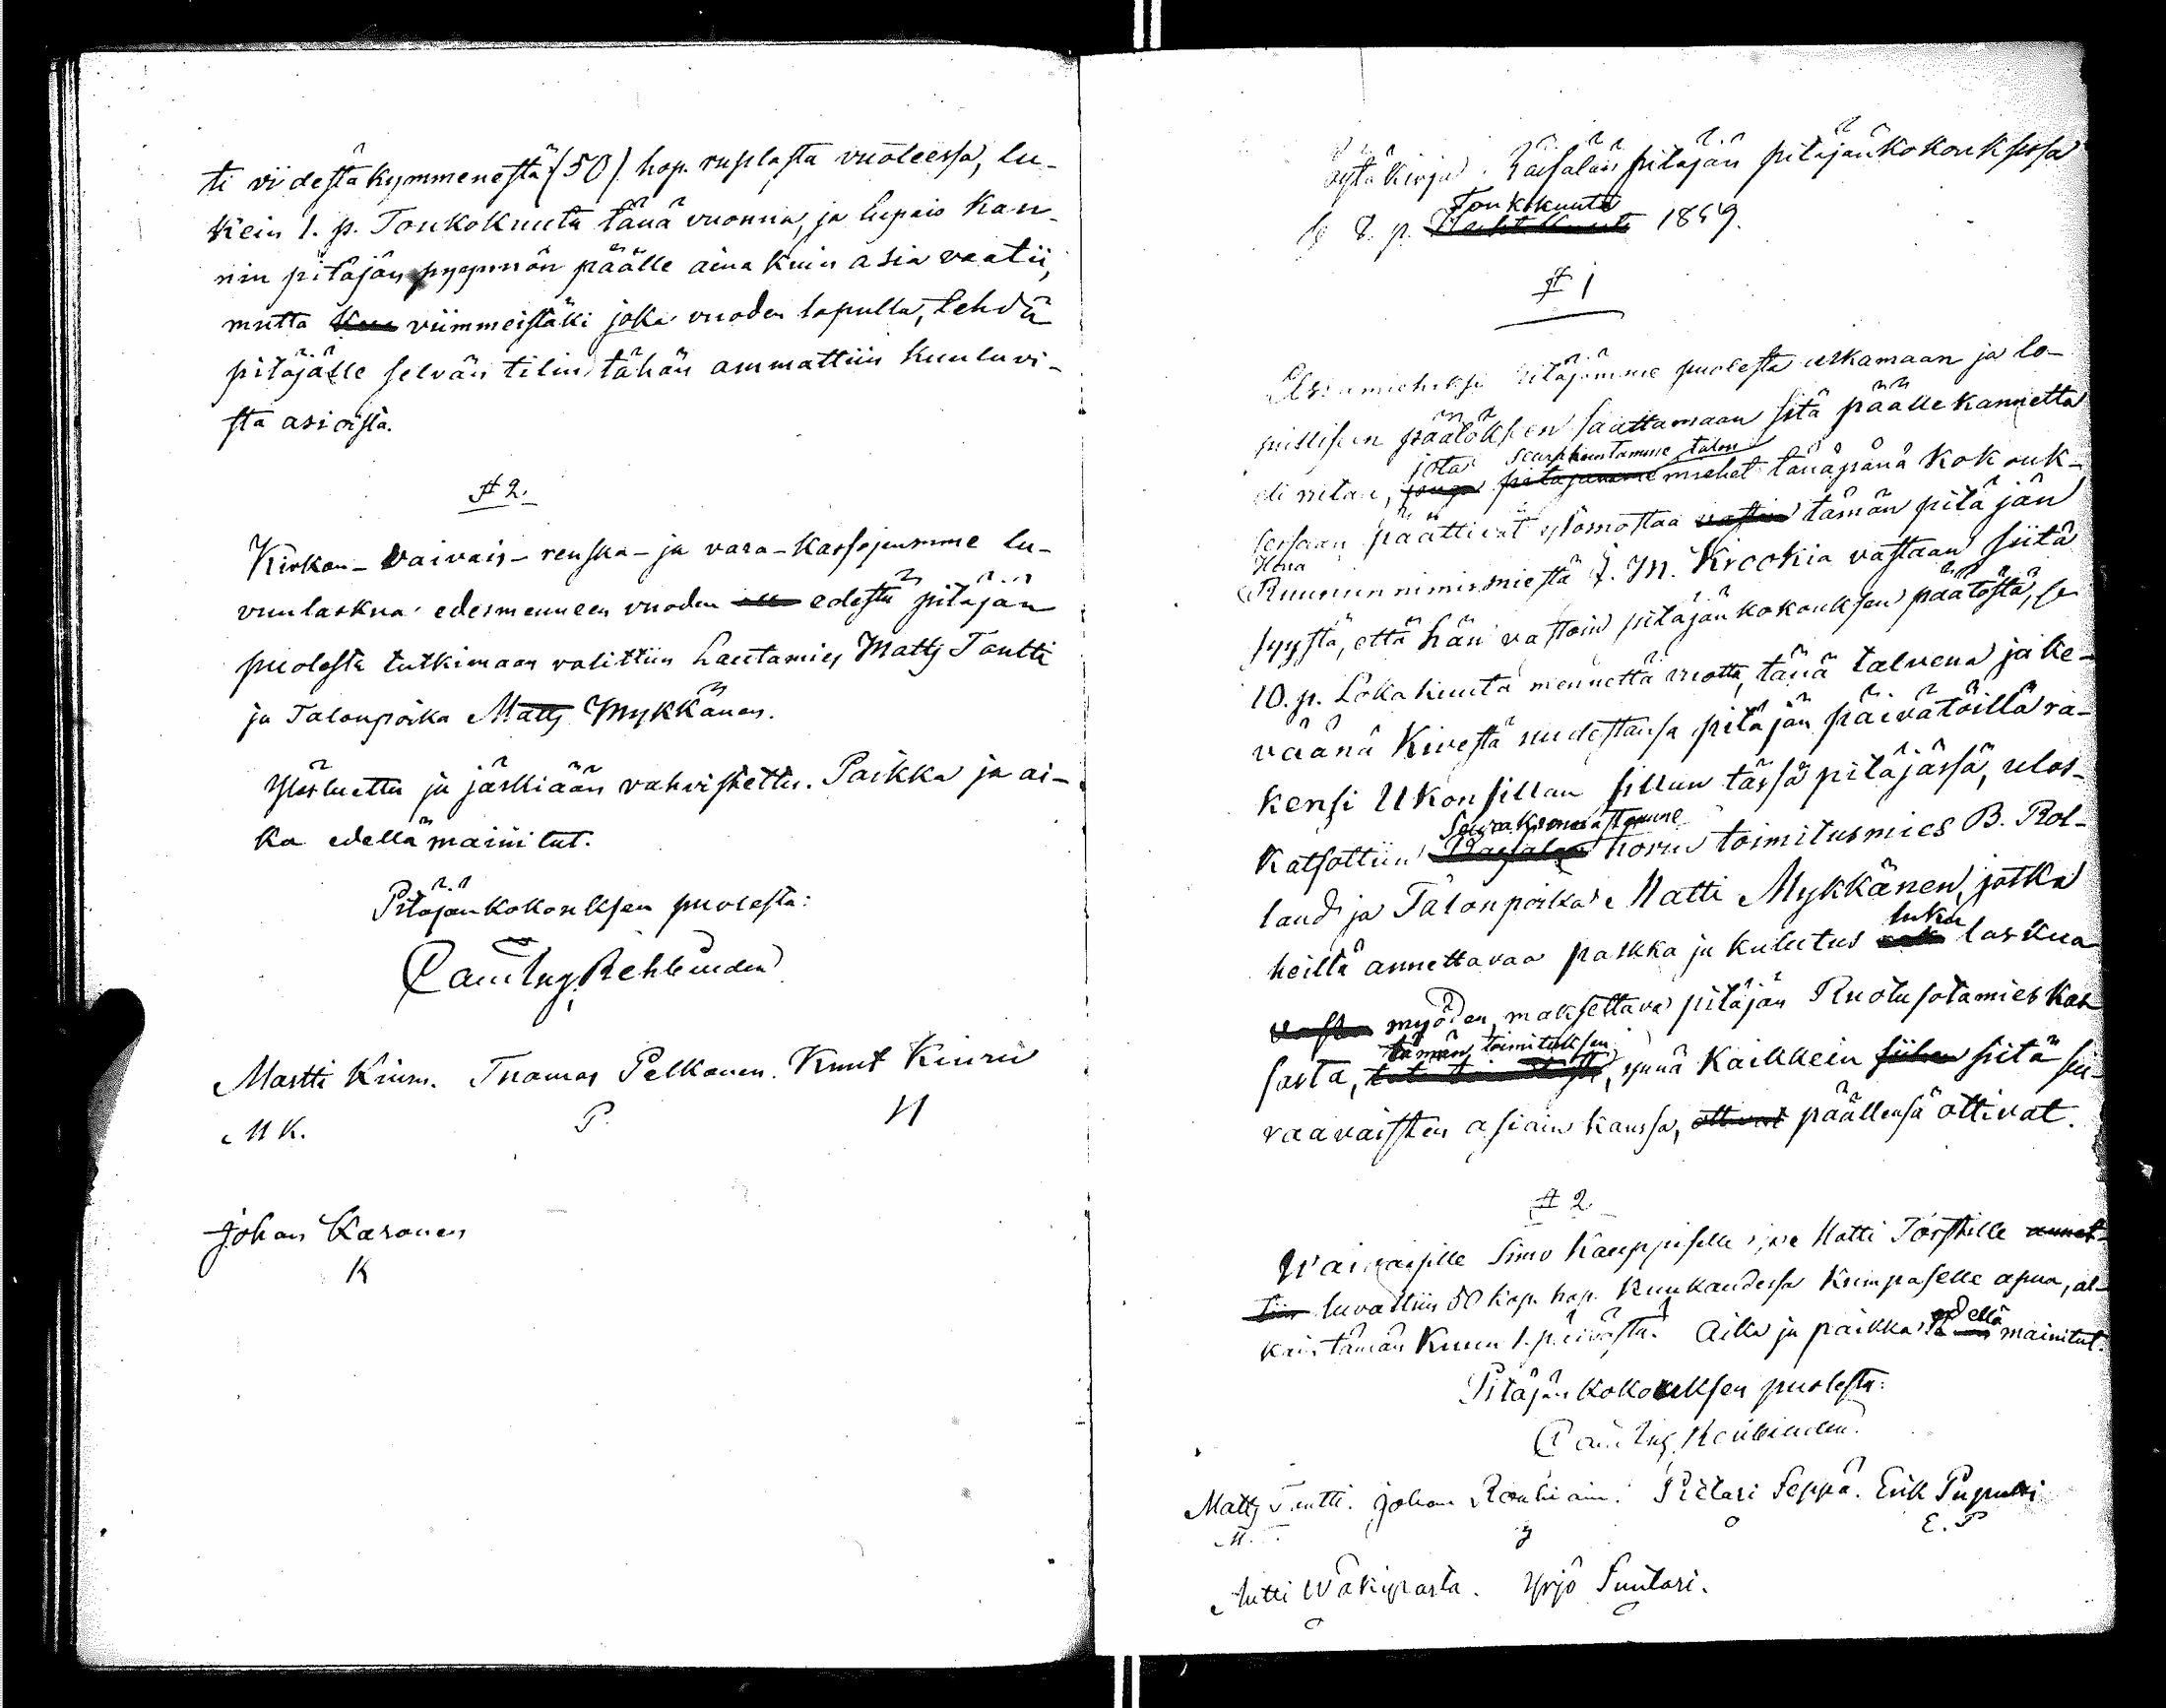 ti viidestäkymmenestä (50) hop. ruplasta vuoteessa, lu-
kein 1. p. Toukokuuta tänä vuonna, ja lupais kan-
nin pitäjän pyynnön päälle aina kuin asia vaatii,
mutta viimmeistäki joka vuoden lopulla, tehdä
pitäjälle selvän tilin tähän ammattiin kuuluvi-
sta asioista.
# 2.
Kirkon- Vaivais- renska- ja vara-kassojemme lu-
vunlaskua edesmenneen vuoden edestä pitäjän
puolesta tutkimaan valittiin Lautamies Matts Tontti
ja Talonpoika Matts Mykkänen.
Ylösluettu ja järkiään vahvistettu. Paikka ja ai-
ka edellä mainitut.
Pitäjänkokouksen puolesta:
Martti Kiuru. Thomas Pelkonen. Knut Kiuru
M K. P.
Johan Karonen
K
Pöytäkirja Räisälän pitäjän pitäjänkokouksessa
Toukokuuta
p. 1849.
# 1
Asiamieheksi pitäjämme puolesta ulkamaan ja lo-
pullisen päätöksen saattamaan sitä päällekannetta
jota seurakuntamme talon
eli riitaa, pitäjämme miehet tänäpänä kokouk-
sessaan päättivät ylösnostaa vastan tämän pitäjän
Herra
Ruununnimismiestä J. M. Krookia vastaan siitä
syystä, että hän vastoin pitäjänkokouksen päätöstä, se
10. p. Lokakuuta mennettä vuotta, tänä talvena ja ke-
väänä kivestä uudestansa pitäjän päivätöillä ra-
kensi Ukonsillan sillan tässä pitäjässä, ulos-
Seurakunnastamme
katsottiin Räisälän hovin toimitusmies B. Rol-
land ja Talonpoika Matti Mykkänen, jotka
luku
heiltä annettavaa palkka ja kulutus laskua
myöden, maksettava pitäjän Ruotusotamies kas
tämän toimituksen
sasta, ynnä kaikkein siihen siitä seu-
raavaisten asiain kanssa, ottivat päällensä ottivat.
# 2
Waivaisille Simo Kauppiselle ja Matti Törstille annet-
tiin luvattiin 50 kop. hop. kuukaudessa kumpaselle apua, al-
edellä
kain tämän kuun 1. päivästä. Aika ja paikka mainitut.
Pitäjän kokouksen puolesta:
Matts Tontti. Johan Roukiain. Pietari Seppä. Erik Pupuli
M. T. E. P
Antti Wäkiparta. Yrjö Suutari.